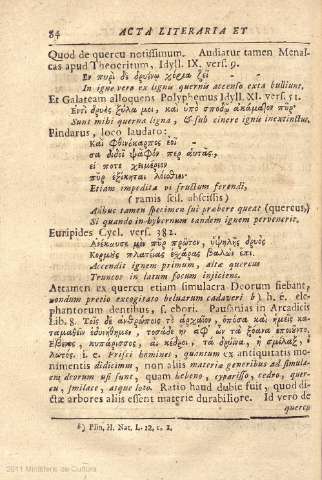 84 ACTA LITERARIA ET
Quod de quercu notissimum. Audiatur tamen Menal-
cas apud Theocritum, Idyll. IX. vers. 9.
Εν πυρὶ δὲ δρυΐνῳ χόρια ζεῖ
In igne vero ex lignis quernis accenso exta bulliunt.
Et Galateam alloquens Polyphemus Idyll. XI. vers. 51.
Εντὶ δρυὸς ξύλα μοι, καὶ ὑπὸ σποδῷ ἀκάματον πῦρ
Sunt mihi querna ligna, & sub cinere ignis inextinctus.
Pindarus, loco laudato:
Καὶ φθινόκαρπος ἐοῖ-
σα διδοῖ ψᾶφον περ αὐτᾶς,
εἴ ποτε χειμέριον
πῦρ ἐξίκηται λοίσθιον
Etiam impedita vi fructum ferendi,
(ramis scil. abscissis)
Adhuc tamen specimen sui præbere queat (quercus,)
Si quando in hybernum tandem ignem pervenerit.
Euripides Cycl. vers. 382.
Ανέκαυσε μὲν πῦρ πρῶτον, ὑψηλῆς δρυὸς
Κορμοὺς πλατείας ἐσχάρας βαλὼν ἔπι.
Accendit ignem primum, altæ quercus
Truncos in latum focum injiciens.
Attamen ex quercu etiam simulacra Deorum fiebant,
nondum pretio excogitato beluarum cadaveri b) h. e. ele-
phantorum dentibus, s. ebori. Pausanias in Arcadicis
Lib. 8. Τοῖς δὲ ἀνθρώποις τὸ ἀρχαῖον, ὁπόσα καὶ ἡμεῖς κα-
ταμαθεῖν ἐδυνήθημεν, τοσάδε ἦν ἀφ' ὧν τὰ ξόανα ἐποιοῦντο,
Εβενος, κυπάρισσος, αἱ κέδροι, τὰ δρύϊνα, ἡ σμίλαξ, ὁ
λωτός. i. e. Priscis hominibus, quantum ex antiquitatis mo-
nimentis didicimus, non aliis materiæ generibus ad simula-
cra deorum usi sunt, quam hebeno, cyparisso, cedro, quer-
cu, smilace, atque loto. Ratio haud dubie fuit, quod di-
ctæ arbores aliis essent materie durabiliore. Id vero de
quercu
b) Plin, H. Nat. L. 12. c. 1.
2011 Ministerio de Cultura